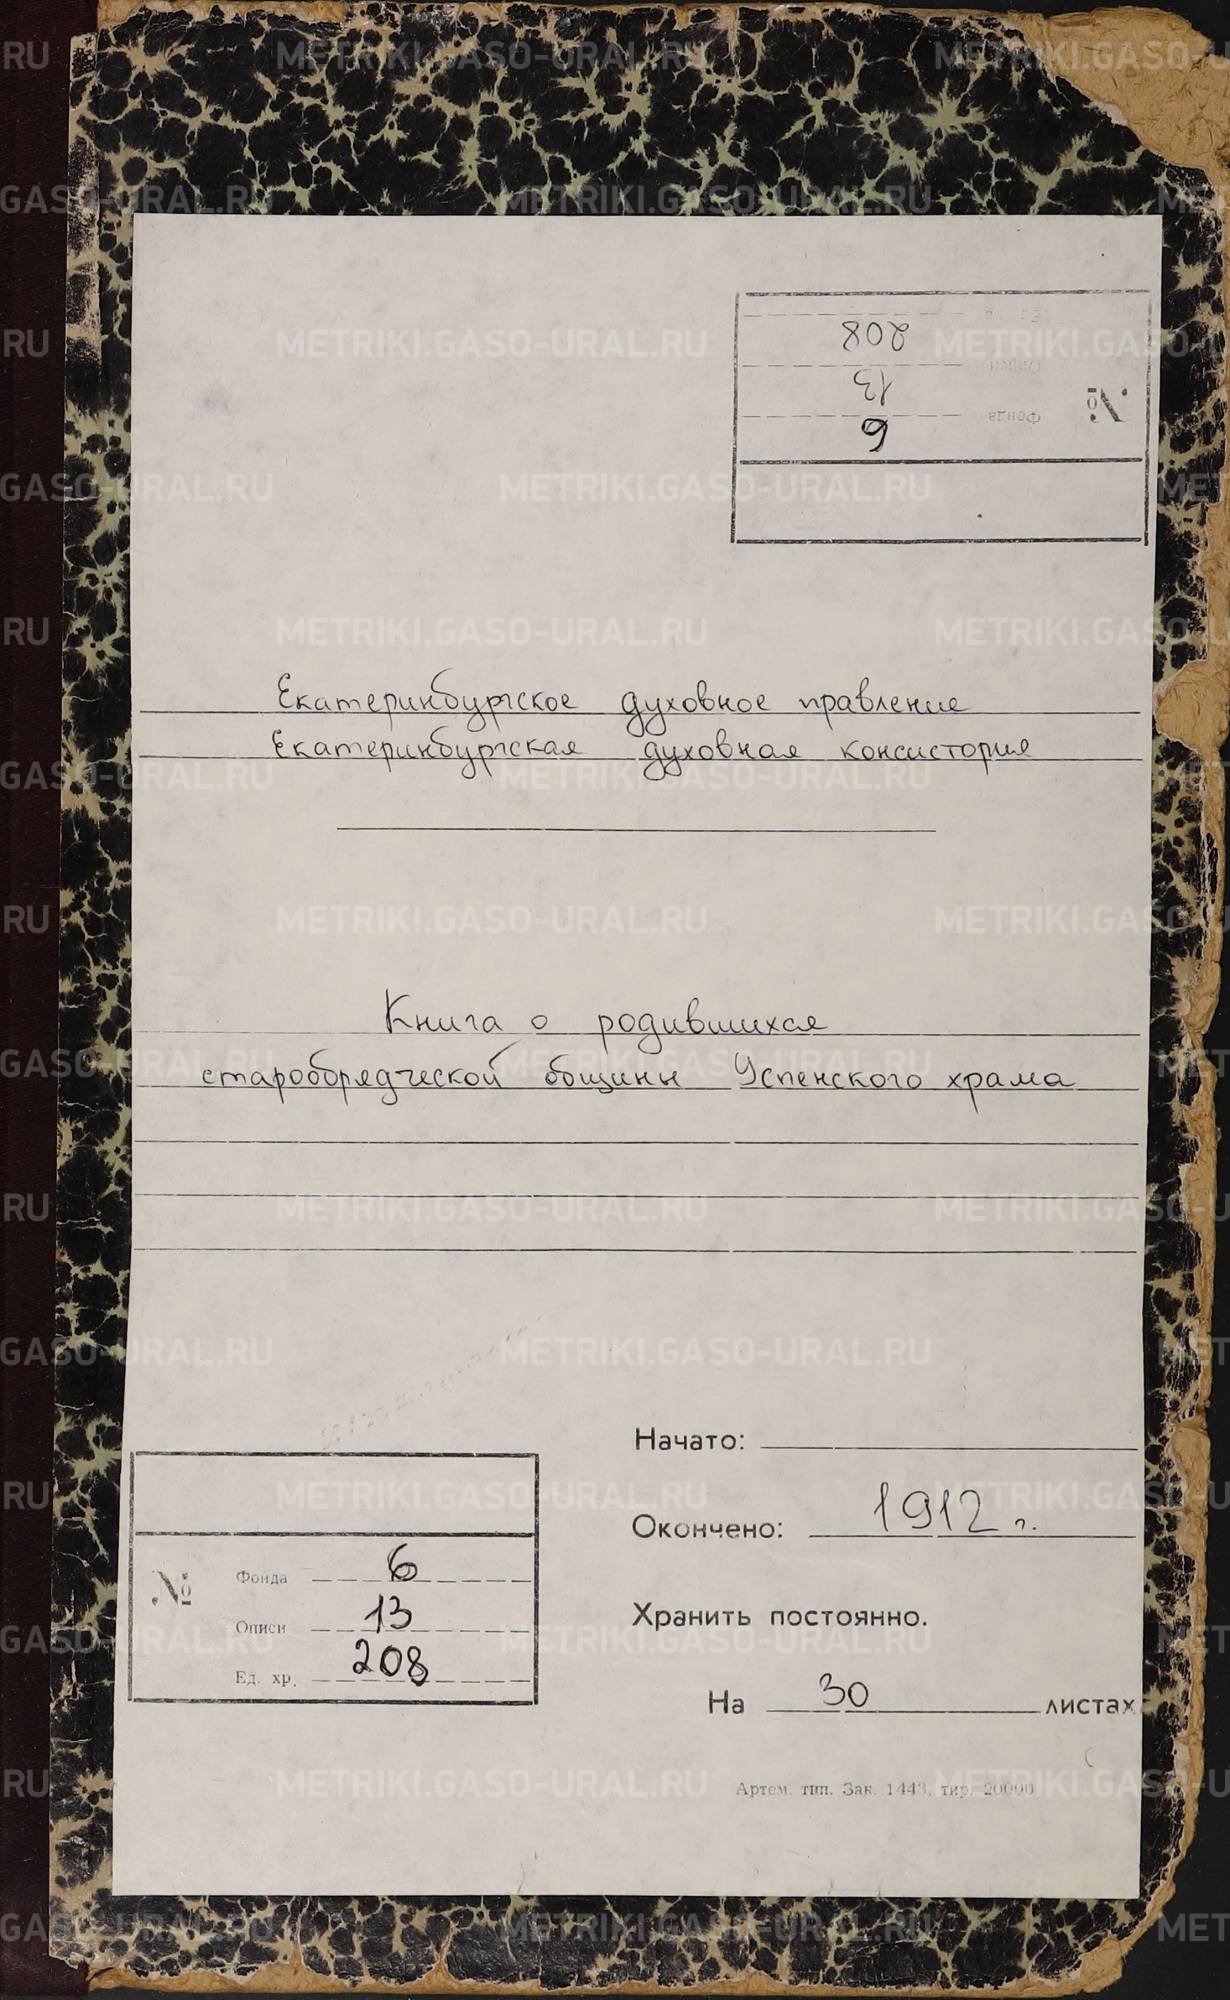 №
Фонда 6
Описи 13
Ед. хр. 208
Екатеринбургское духовное правление
Екатеринбургская духовная консистория
Книга о родившихся
старообрядческой общины Успенского храма
Начато:
Окончено: 1912 г.
Хранить постоянно.
На 30 листах
№
Фонда 6
Описи 13
Ед. хр. 208
Артем. тип. Зак. 1443, тир. 20000
METRIKI.GASO-URAL.RU